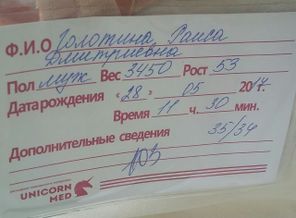 Ф.И.ОГолотина Раиса
Дмитриевна
Пол муж Вес 3450 Рост 53
Дата рождения «28» 05 2017
Время 11 ч. 30 мин.
Дополнительные сведения 35/34
UNICORN
MED